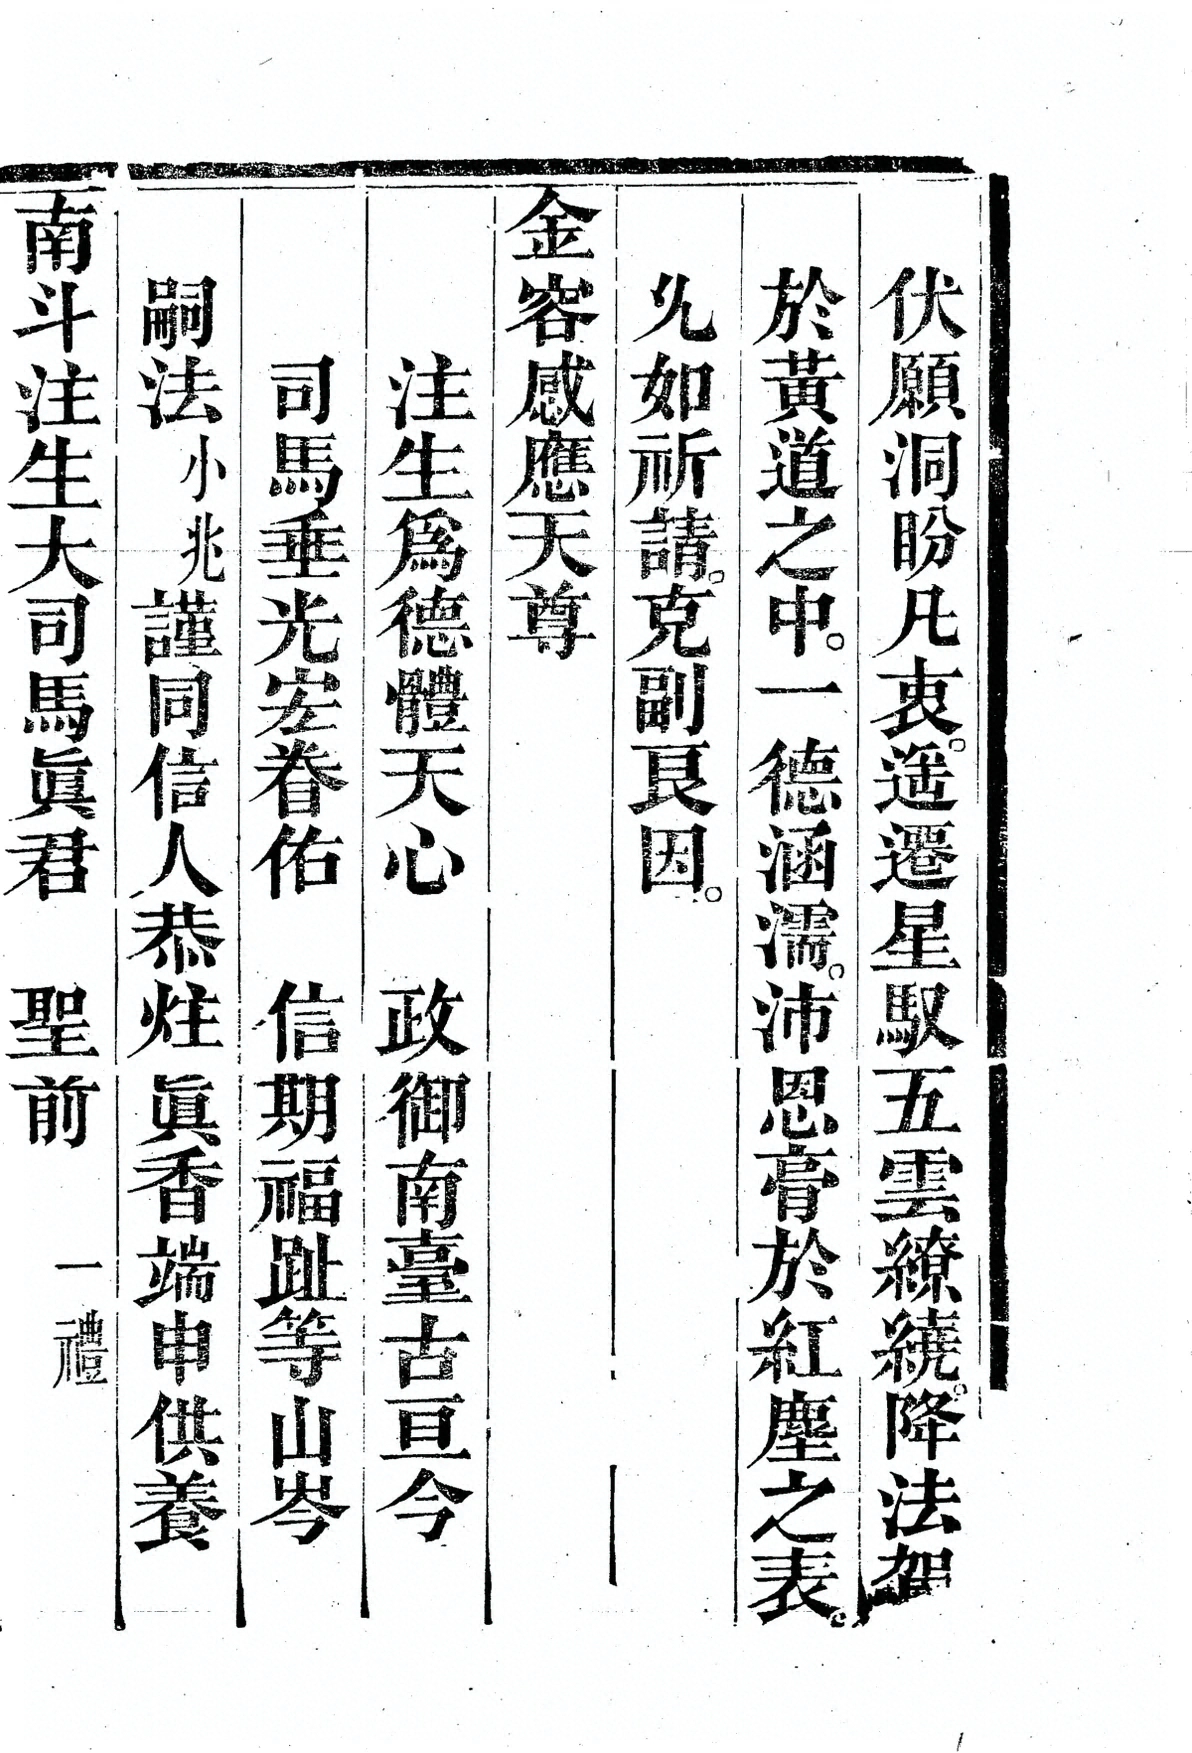 伏願洞盼凡衷。遥遷星馭五雲繚繞。降法駕
於黃道之中。一德涵濡。沛恩膏於紅塵之表。
凢如祈請。克副艮因。
金容感應天尊
注生爲德體天心　政御南臺古亘今
司馬垂光宏眷佑　信期福趾等山岑
嗣法小兆謹同信人恭炷眞香端申供養
南斗注生大司馬眞君　聖前　一禮